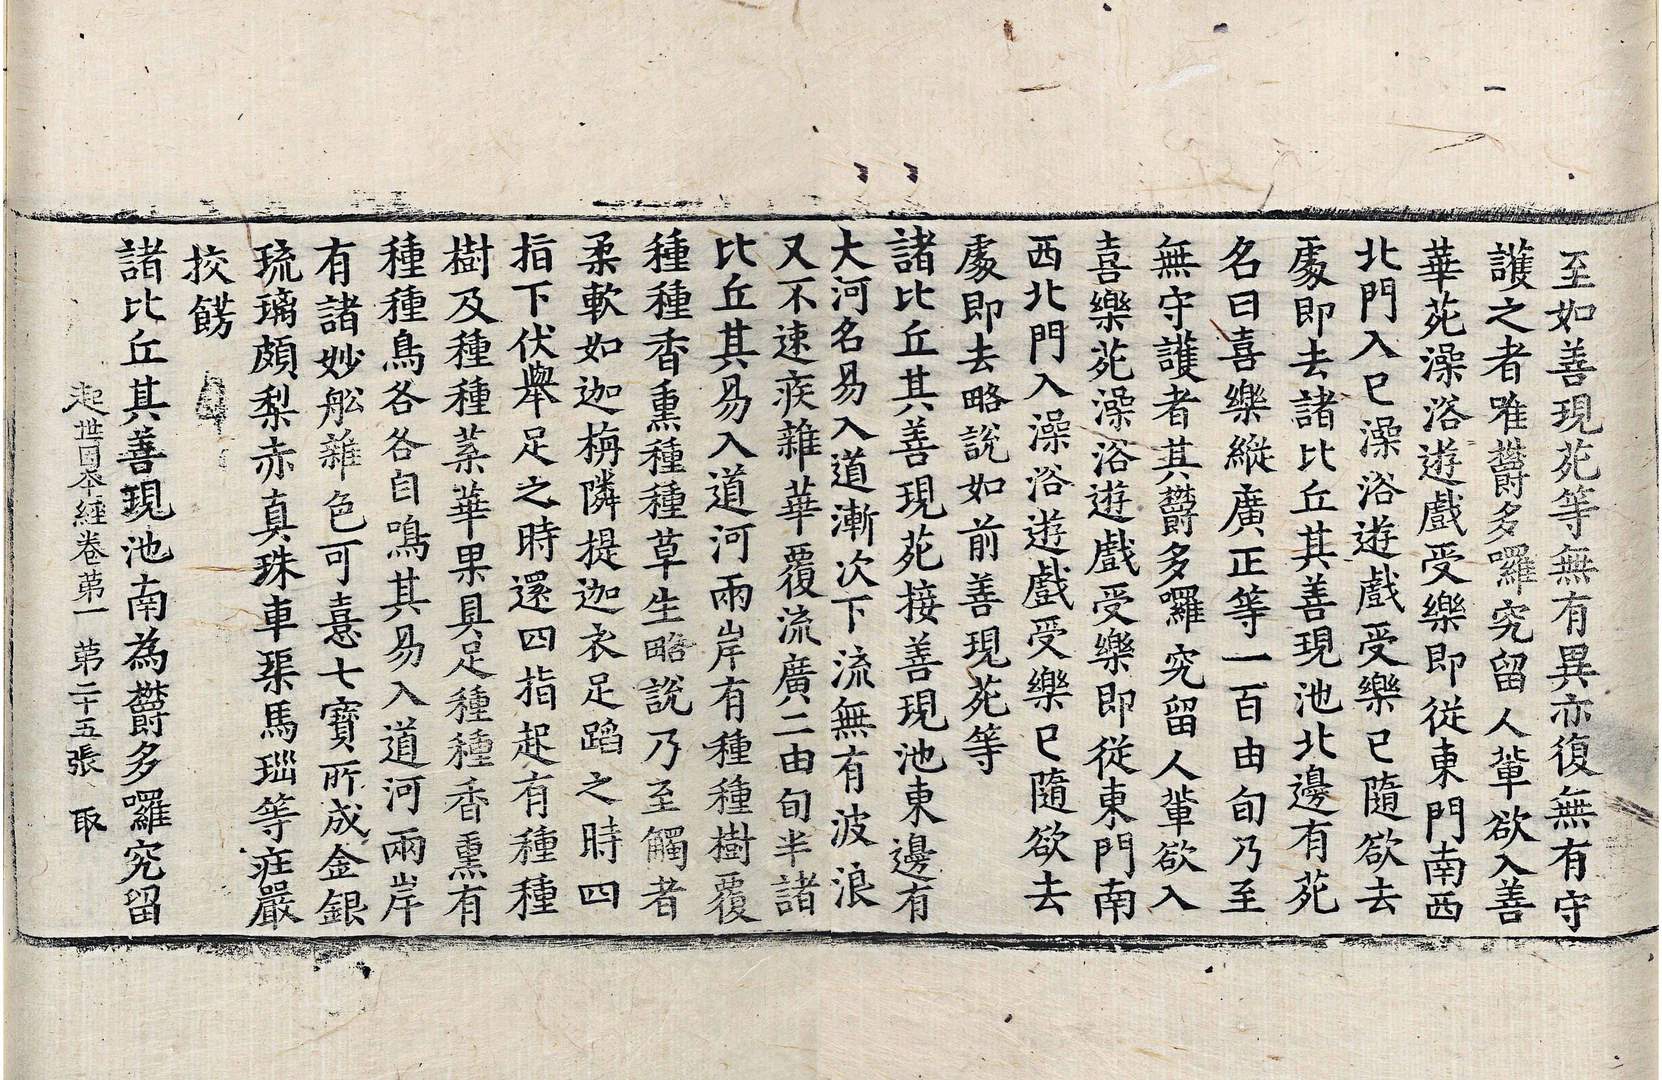 至如善現苑等無有異亦復無有守
護之者唯欝多囉究留人輩欲入善
華苑澡浴遊戲受樂即從東門南西
北門入已澡浴遊戲受樂已隨欲去
處即去諸比丘其善現池北邊有苑
名曰喜樂縱廣正等一百由旬乃至
無守護者其欝多囉究留人輩欲入
喜樂苑澡浴遊戲受樂即從東門南
西北門入澡浴遊戲受樂已隨欲去
處即去略說如前善現苑等
諸比丘其善現苑接善現池東邊有
大河名易入道漸次下流無有波浪
又不速疾雜華覆流廣二由旬半諸
比丘其易入道河兩岸有種種樹覆
種種香熏種種草生略說乃至觸者
柔軟如迦栴隣提迦衣足蹈之時四
指下伏舉足之時還四指起有種種
樹及種種葉華果具足種種香熏有
種種鳥各各自鳴其易入道河兩岸
有諸妙舩雜色可憙七寶所成金銀
琉璃頗梨赤真珠車𤦲馬瑙等庄嚴
挍餝
諸比丘其善現池南為欝多囉究留
起世因本經卷第一　第二十五張　取